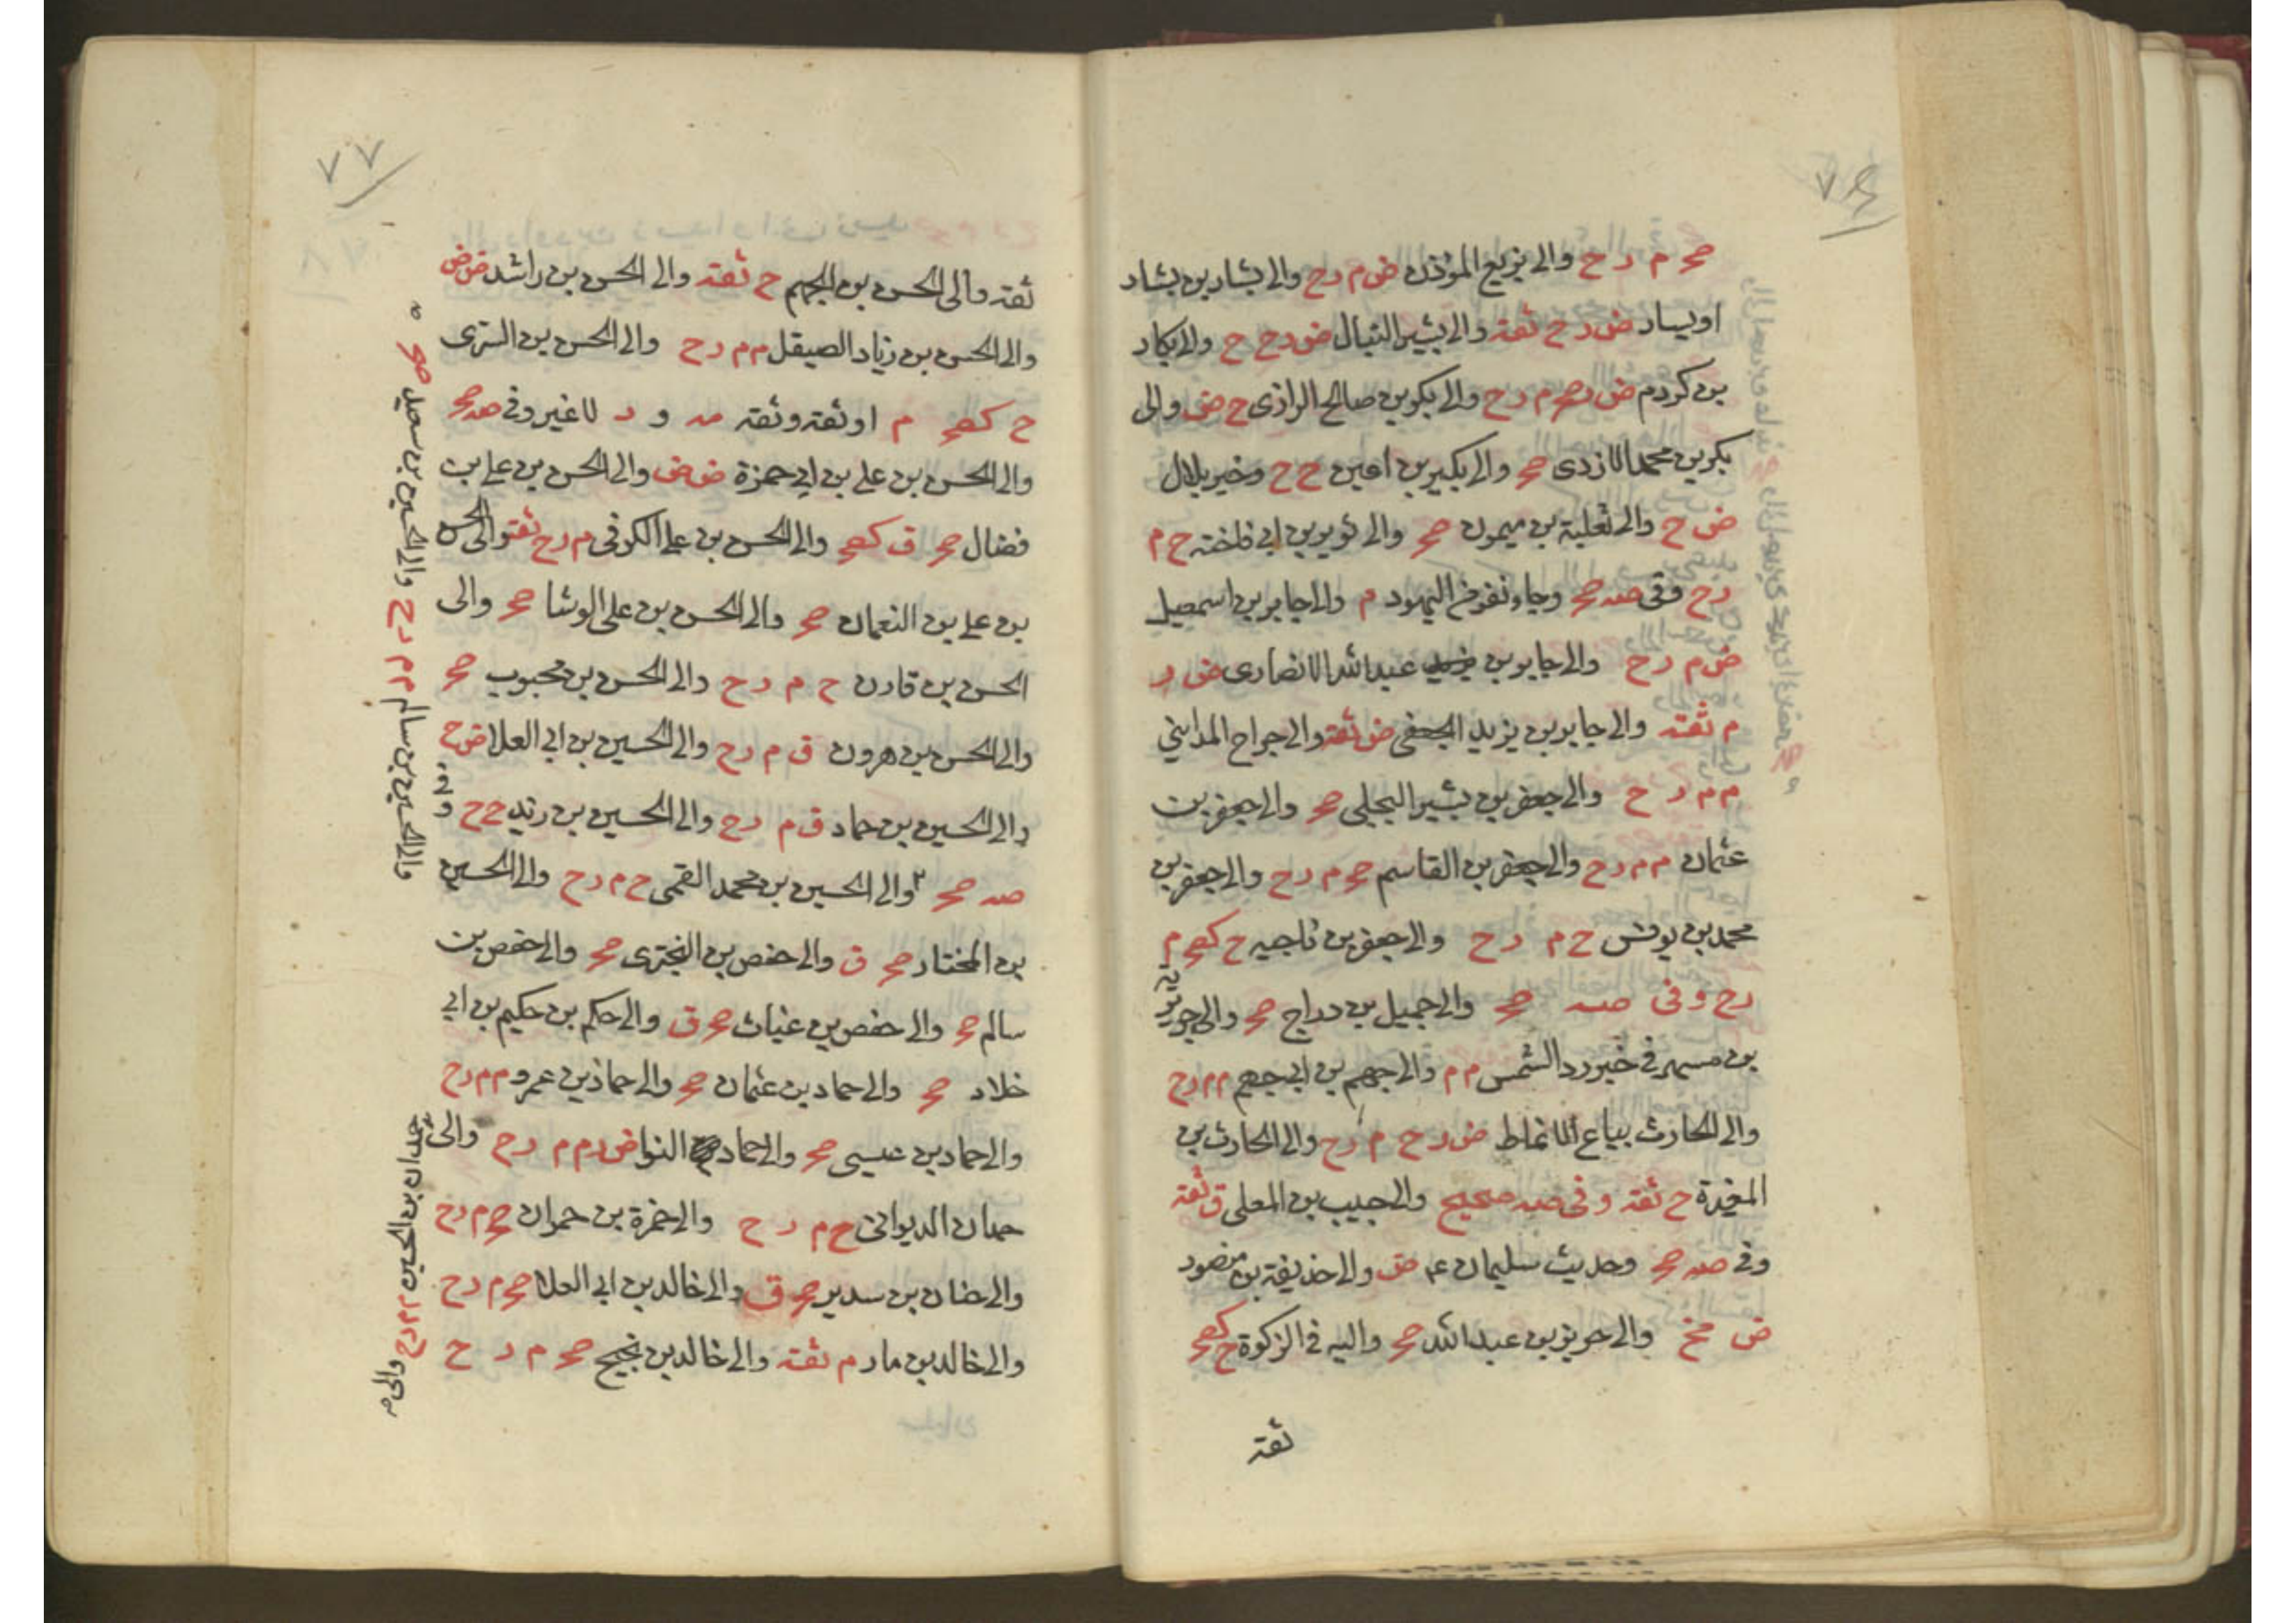 صح م ر ح والى بزيع المؤذن ض م ر ح والى بشار بن بشار
او يسار ض ر ح ثقة والى بشير النبال ض ر ح ح والى بكار
بن كردم ض صح م ر ح والى بكر بن صالح الرازى ح ض والى
بكر بن محمد الازدى صح والى بكير بن اعين ح ح وخبر بلال
ض ح والى ثعلبة بن ميمون صح والى ثوير بن ابى فاختة ح م
ر ح وفى صه صح وجاء نفر من اليهود م والى جابر بن اسمعيل
ض م ر ح والى جابر بن عبد الله الانصارى ض ر
م ثقة والى جابر بن يزيد الجعفى ض ثقة والى جراح المداينى
م م ر ح والى جعفر بن بشير البجلى صح والى جعفر بن
عثمان م م ر ح والى جعفر بن القاسم صح م ر ح والى جعفر بن
محمد بن يونس ح م ر ح والى جعفر بن ناجيه ح كصح م
ر ح وفى صه صح والى جميل بن دراج صح والى جويرية
بن مسهر فى خبر رد الشمس م م والى جهم بن ابى جهم م م ر ح
والى الحارث بياع الانماط ض ر ح م ر ح والى الحارث بن
المغيرة ح ثقة وفى صه صحيح والى حبيب بن المعلى ق ثقة
وفى صه صح وحديث سليمان ع م ض والى حذيفة بن منصور
ض مخ والى حريز بن عبد الله صح واليه فى الزكوة ح كصح
ثقة
٧٧
ثقة والى الحسن بن الجهم ح ثقة والى الحسن بن راشد ض ض
والى الحسن بن زياد الصيقل م م ر ح والى الحسن بن السرى
ح كصح م او ثقة وثقة مد و د لا غير وفى صه صح
والى الحسن بن على بن ابى حمزة ض ض والى الحسن بن على بن
فضال صح ق كصح والى الحسن بن على الكوفى م ر ح ثقة والى الحسن
بن على بن النعمان صح والى الحسن بن على الوشا صح والى
الحسن بن قارن ح م ر ح والى الحسن بن محبوب صح
والى الحسن بن هرون ق م ر ح والى الحسين بن ابى العلا ض ح
والى الحسين بن حماد ق م ر ح والى الحسين بن زيد ح ح وفى
صه صح والى الحسين بن محمد القمى ح م ر ح والى الحسين
بن المختار صح ق والى حفص بن البخترى صح والى حفص بن
سالم صح والى حفص بن غياث صح ق والى حكم بن حكيم بن ابى
خلاد صح والى حماد بن عثمان صح والى حماد بن عمرو م م ر ح
والى حماد بن عيسى صح والى حماد النوا ض ر م م ر ح والى
حمدان الديوانى ح م ر ح والى حمزة بن حمران صح م ر ح
والى حنان بن سدير صح ق والى خالد بن ابى العلا صح م ر ح
والى خالد بن ماد م ثقة والى خالد بن نجيح صح م ر ح
والى الحسين بن سالم م م ر ح والى الحسين بن سعيد صح
حمدان بن الحسين م م ر ح والى